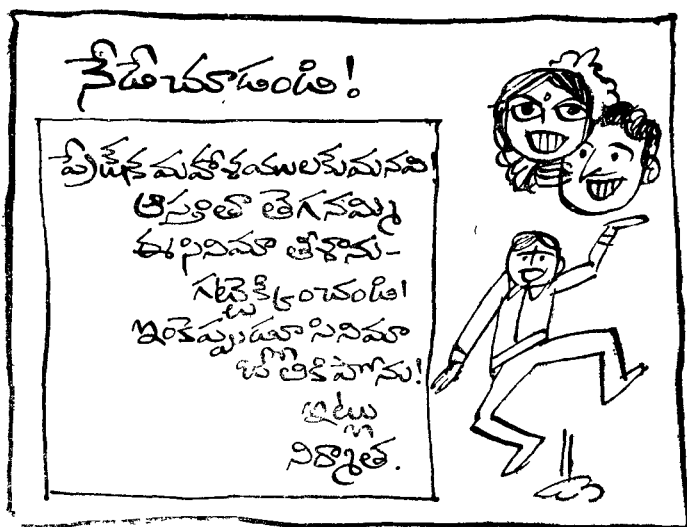 నేడే చూడండి!
ప్రేక్షక మహాశయులకు మనవి!
ఆస్తంతా తెగనమ్మి
ఈ సినిమా తీశాను-
గట్టెక్కించండి!
ఇంకెప్పుడూ సినిమా
జోలికి పోను!
ఇట్లు
నిర్మాత.